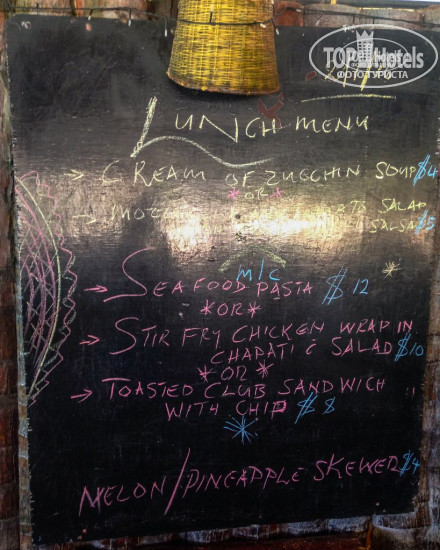 TOPHotels
ФОТОТУРИСТА
LUNCH MENU
→ CREAM OF ZUCCHIN SOUP $4
*OR*
SALAD
SALSA $5
M/C
→ SEAFOOD PASTA $12
*OR*
→ STIR FRY CHICKEN WRAP IN
CHAPATI & SALAD $10
*OR*
→ TOASTED CLUB SANDWICH
WITH CHIP $8
MELON/PINEAPPLE SKEWER $4